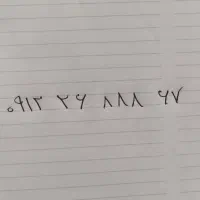 ۰۹۱۳ ۲۶ ۸۸۸ ۶۷